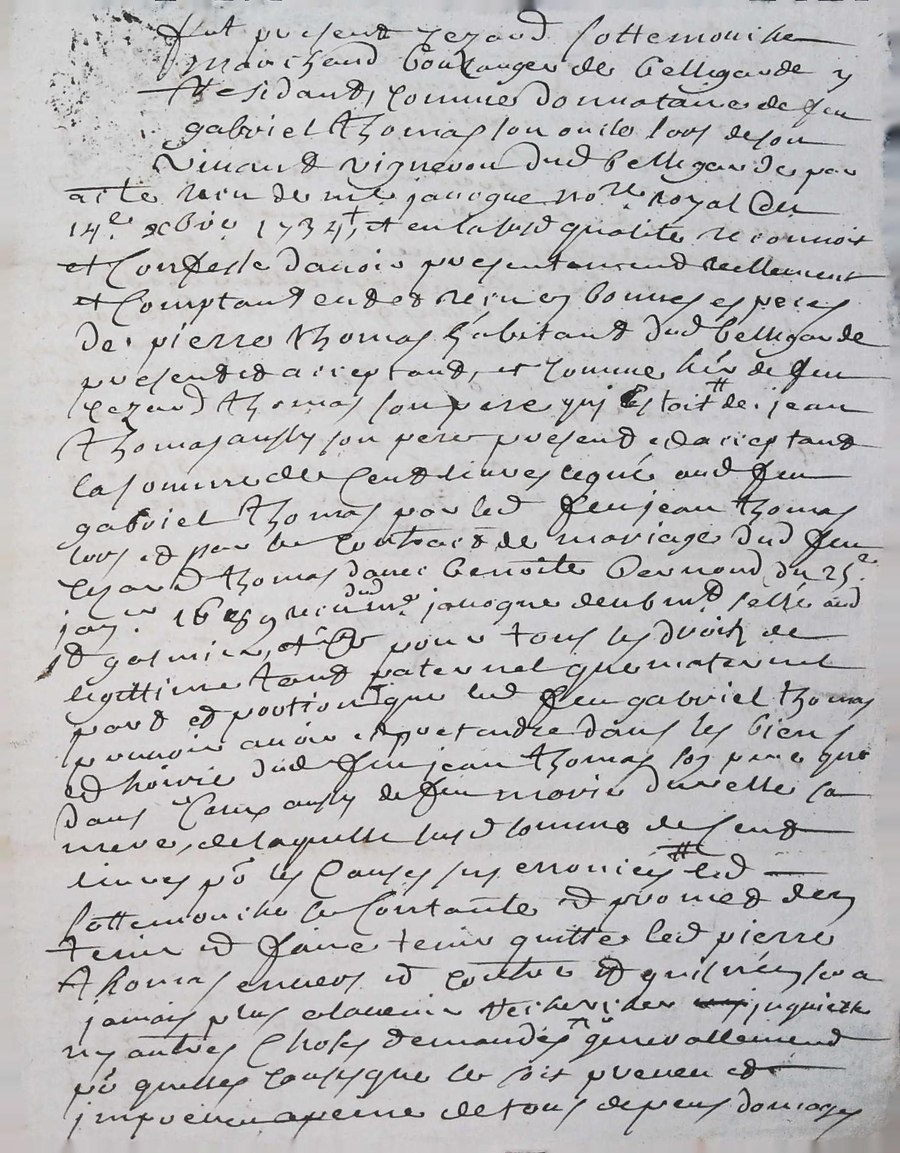 fut present cezard sottemouche
marchand boulanger de bellegarde y
Residant, comme donnataire de feu
gabriel thomas son oncle lors de son
vivant vigneron dud bellegarde par
acte receu de me javogue nore royal Le
14e xbre 1734, et en lad qualité reconnoit
et Confesse d'avoir presentement reellement
et Comptant eu et receu en bonnes especes
de pierre thomas habitant dud bellegarde
present et acceptant, et comme hér de feu
cezard thomas son pere qui Estoit de jean
thomas aussy son pere present et acceptant
la somme de Cent livres legué aud feu
gabriel thomas par led feu jean thomas
lors et par le Contract de mariage dud feu
cesard thomas avec benoite du 25e
janr receu dud me javogue
et galmier, et pour tous les droits de
legittime tant paternel que maternel
part et portion que led feu gabriel thomas
pouvoir avoir et pretendre dans les biens
et hoirie dud feu jean thomas son pere que
dans Ceux aussy de feu marie sa
mere, de laquelle susd somme de Cent
livres pr les Causes sus led
sottemouche Le Contante et promet den
tenir et faire tenir quitte led pierre
thomas envers et contre et quil n'en sera
jamais plus a lavenir Recherché inquietté
ny autres Choses demandés generallement
pr quelles causes que ce soit preveu et
impreveu a peine de tous depens domages